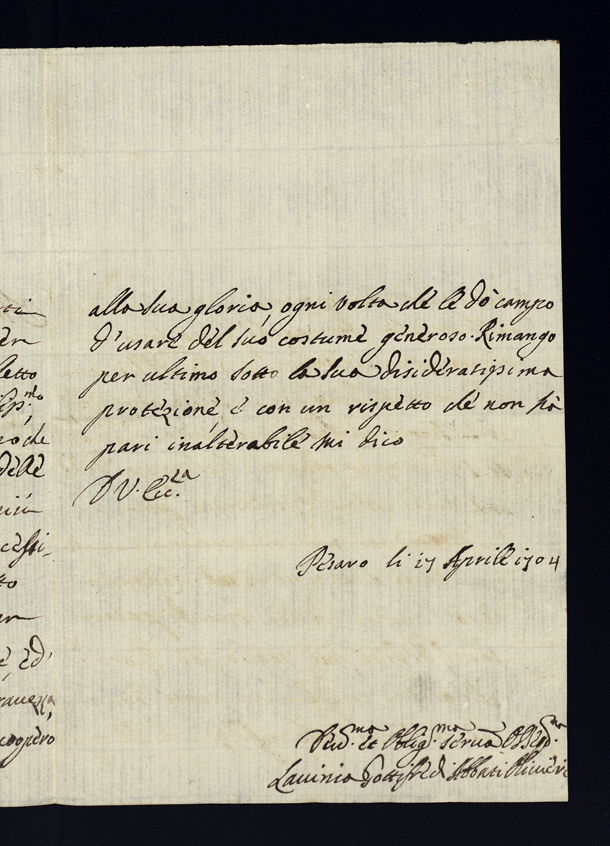 alla sua gloria, ogni volta che le dò campo
d'usare del suo costume generoso. Rimango
per ultimo sotto la sua disideratissima
protezione, e con un rispetto che non hà
pari inalterabile mi dico
D V. Ecc.za
Pesaro li 17 Aprile 1704
Dev.ma et Oblig.ma serva Osseq.ma
Lavinia Gottifredi Abbati Olivieri
letto
che
delle
to
è, ed
cooperò